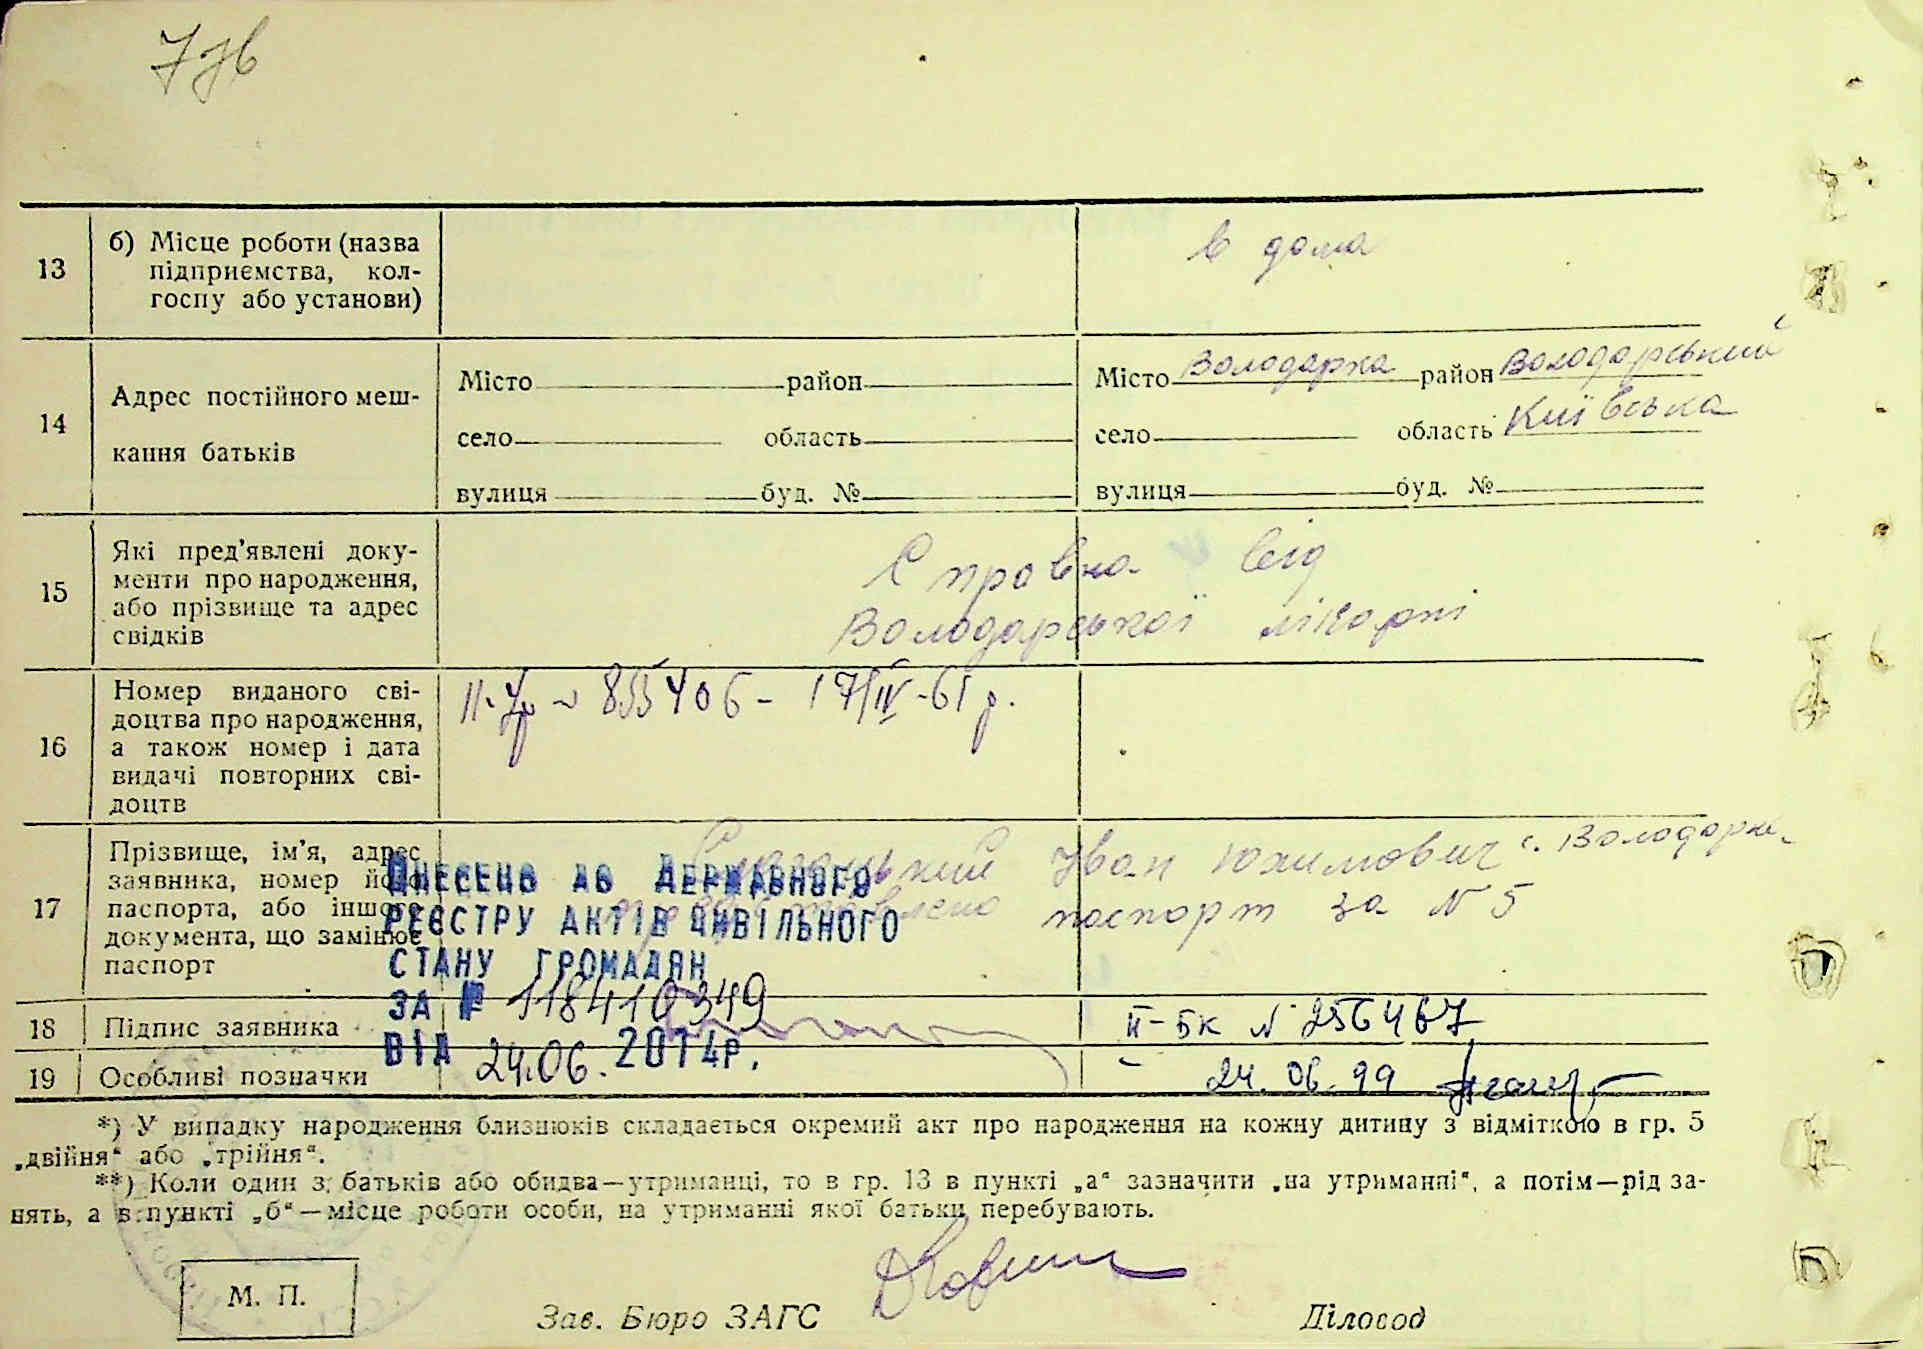 13
б) Місце роботи (назва
підприємства, кол-
госпу або установи)
в дома
14
Адрес постійного меш-
кання батьків
Місто район
село область
вулиця буд. №
Місто Володарка район Володарський
село область Київська
вулиця буд. №
15
Які пред'явлені доку-
менти про народження,
або прізвище та адрес
свідків
Справка від
Володарської лікарні
16
Номер виданого сві-
доцтва про народження,
а також номер і дата
видачі повторних сві-
доцтв
855406 - 17/IV-61 р.
17
Прізвище, ім'я, адрес
заявника, номер його
паспорта, або іншого
документа, що замінює
паспорт
Іван Юхимович с. Володарка
паспорт за N 5
ВНЕСЕНО ДО ДЕРЖАВНОГО
РЕЄСТРУ АКТІВ ЦИВІЛЬНОГО
СТАНУ ГРОМАДЯН
ЗА № 118410349
ВІД 24.06. 2014р.
18
Підпис заявника
ІІ-БК N 256467
19
Особливі позначки
24.06.99
*) У випадку народження близнюків складається окремий акт про народження на кожну дитину з відміткою в гр. 5
„двійня“ або „трійня“.
**) Коли один з батьків або обидва—утриманці, то в гр. 13 в пункті „а“ зазначити „на утриманні“, а потім—рід за-
нять, а в пункті „б“—місце роботи особи, на утриманні якої батьки перебувають.
М. П.
Зав. Бюро ЗАГС
Діловод